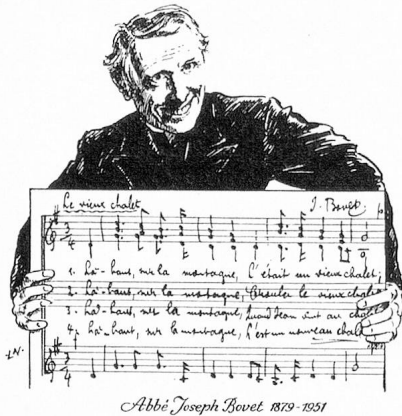 Le vieux chalet
J. Bovet
1. Là-haut, sur la montagne, L'était un vieux chalet;
2. Là-haut, sur la montagne, Croula le vieux chalet
3. Là-haut, sur la montagne, Quand Jean vint au chalet
4. Là-haut, sur la montagne, L'est un nouveau chalet
Abbé Joseph Bovet 1879-1951